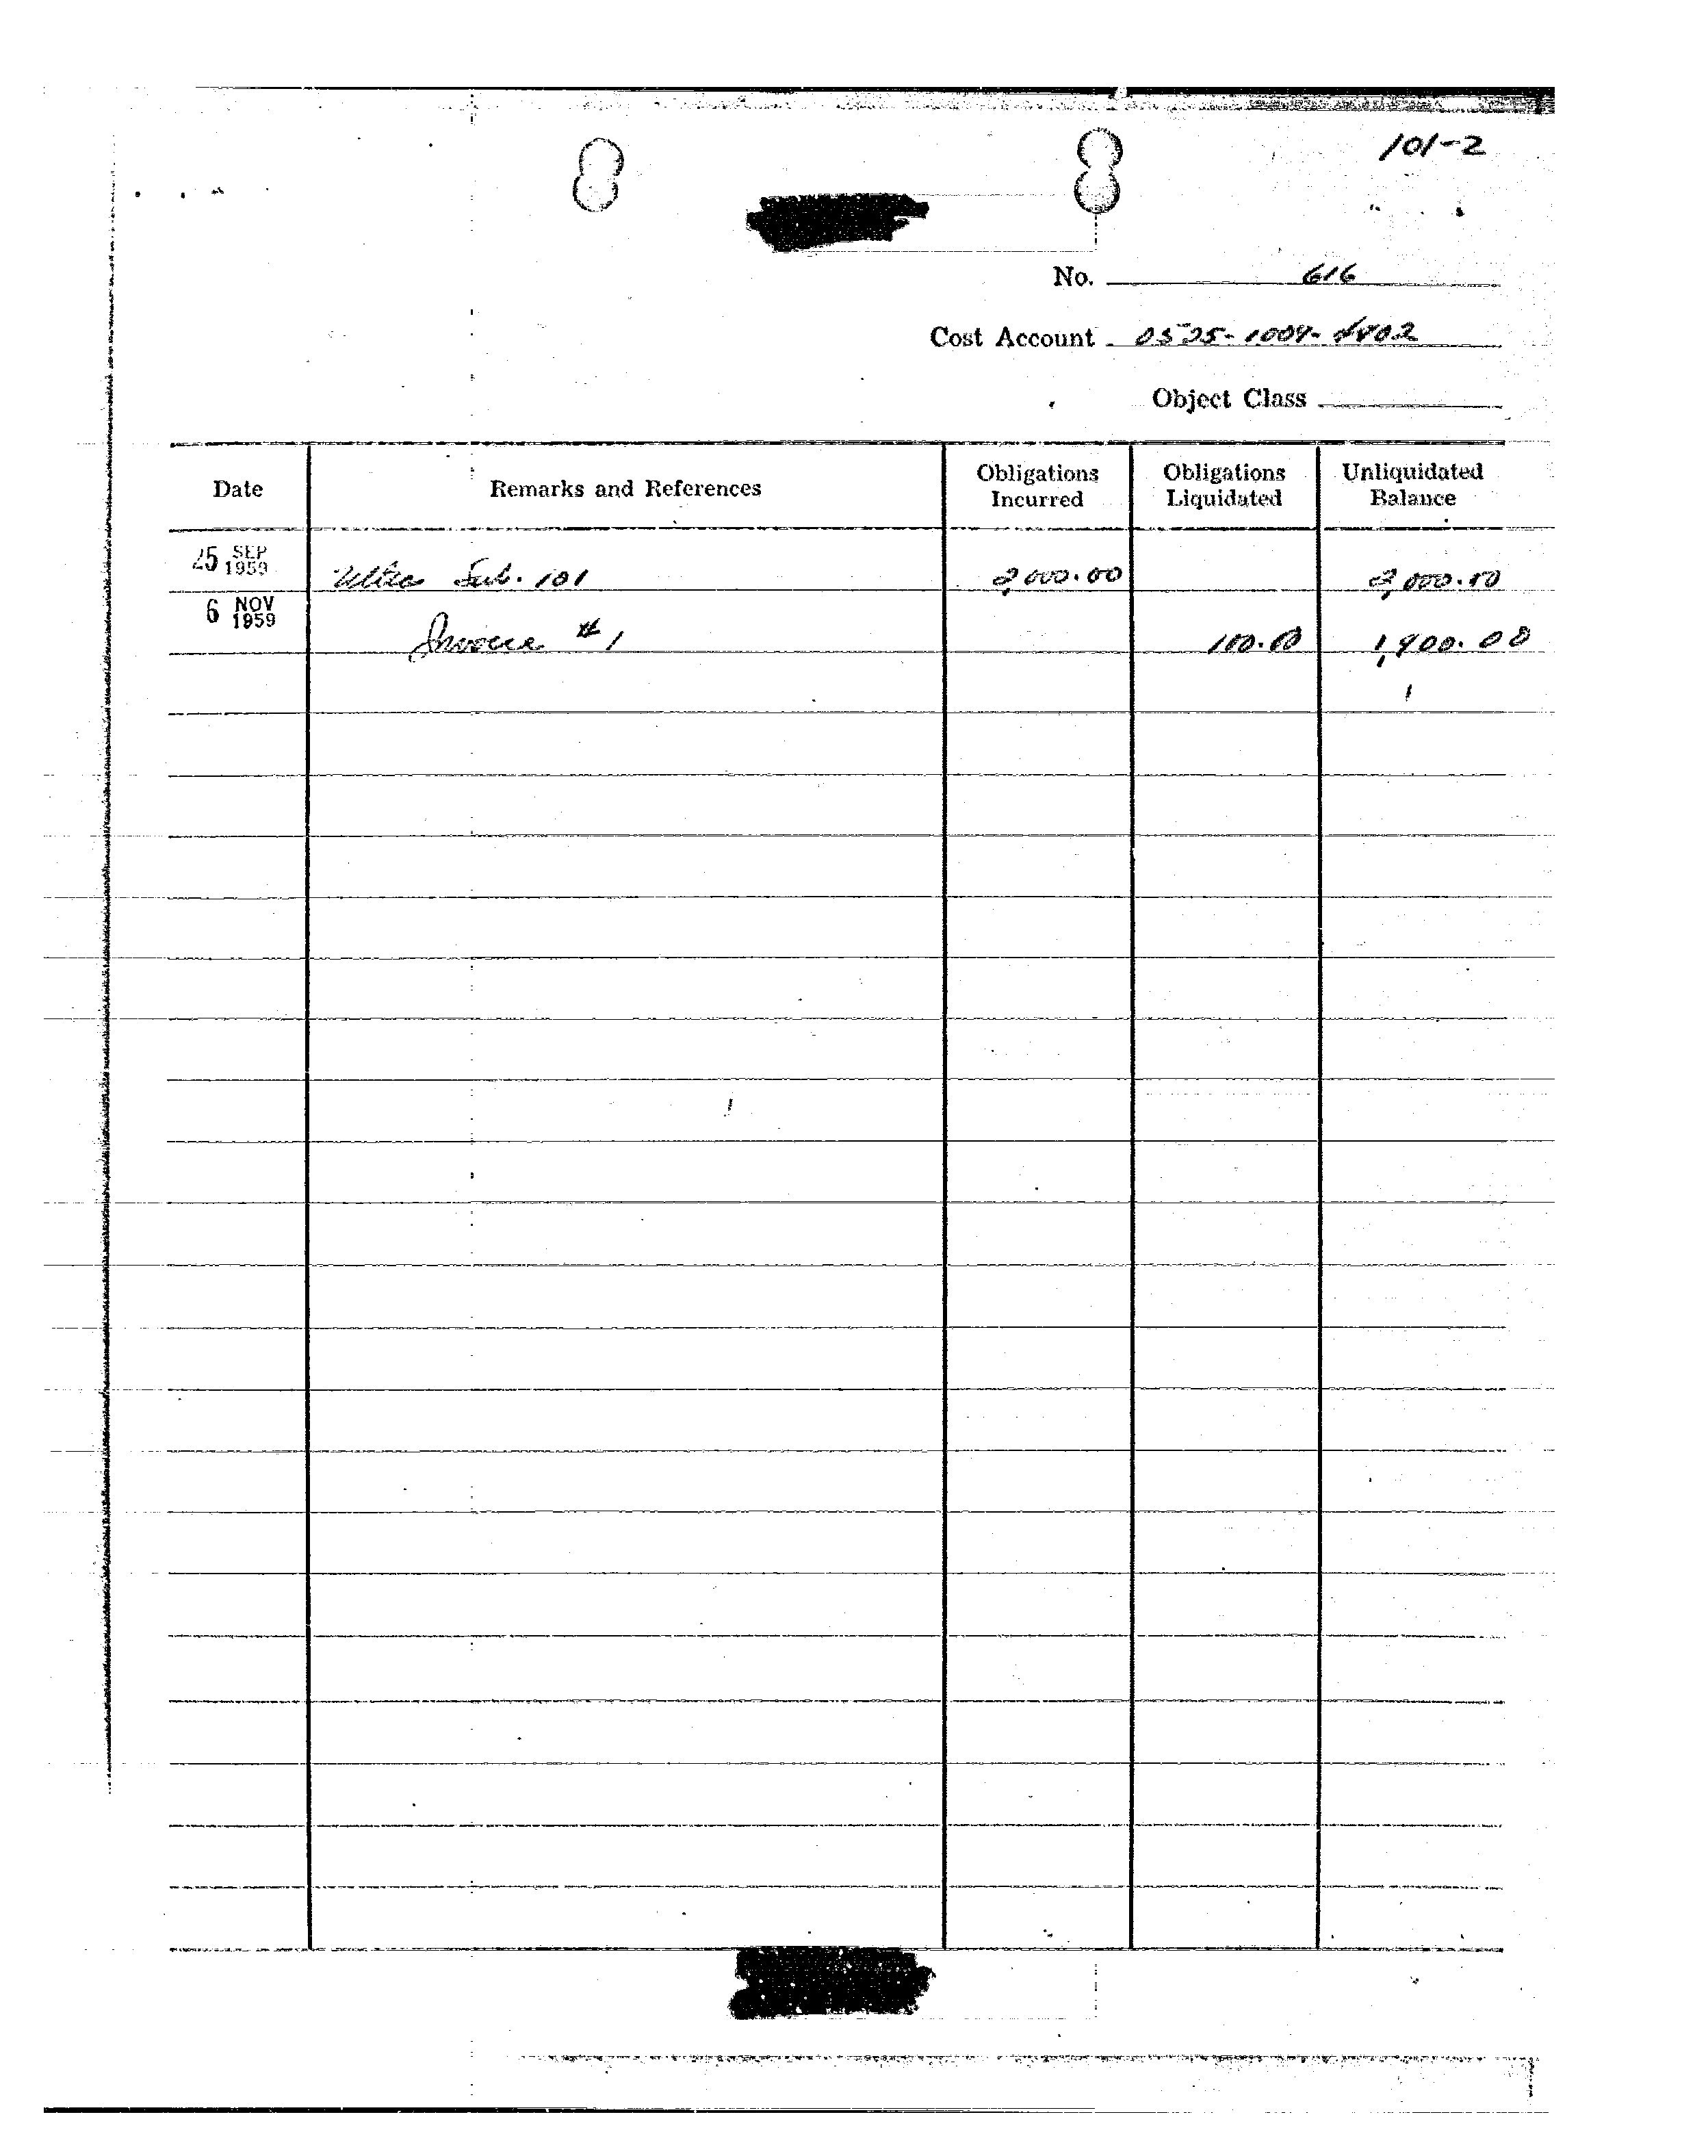 101-2
No. 616
Cost Account 0525-1009-4902
Object Class
Date Remarks and References Obligations Incurred Obligations Liquidated Unliquidated Balance
25 SEP 1959 Sub. 101 2,000.00 2,000.00
6 NOV 1959 Invoice #1 100.00 1,900.00